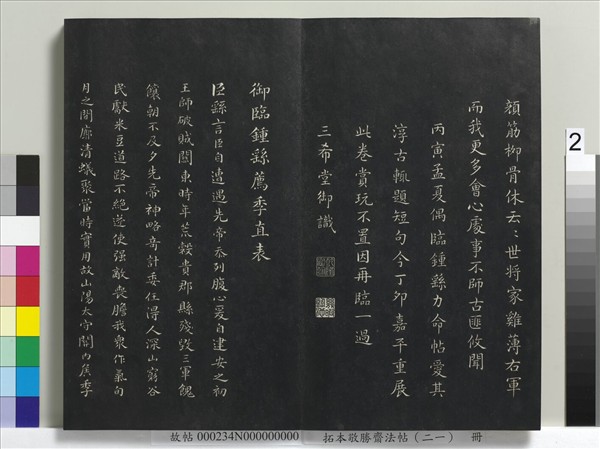 顏筋柳骨休云〻世將家雞薄右軍
而我更多會心處事不師古匪攸聞
丙寅孟夏偶臨鍾繇力命帖愛其
淳古輒題短句今丁卯嘉平重展
此卷賞玩不置因再臨一過
三希堂御識
御臨鍾繇薦季直表
臣繇言臣自遭遇先帝忝列腹心爰自建安之初
王師破賊關東時年荒穀貴郡縣殘毀三軍餽
饟朝不及夕先帝神略奇計委任得人深山窮谷
民獻米豆道路不絕遂使強敵喪膽我衆作氣旬
月之間廓清蟻聚當時實用故山陽太守關內侯季
2
故帖 000234N000000000 拓本敬勝齋法帖（二一） 冊